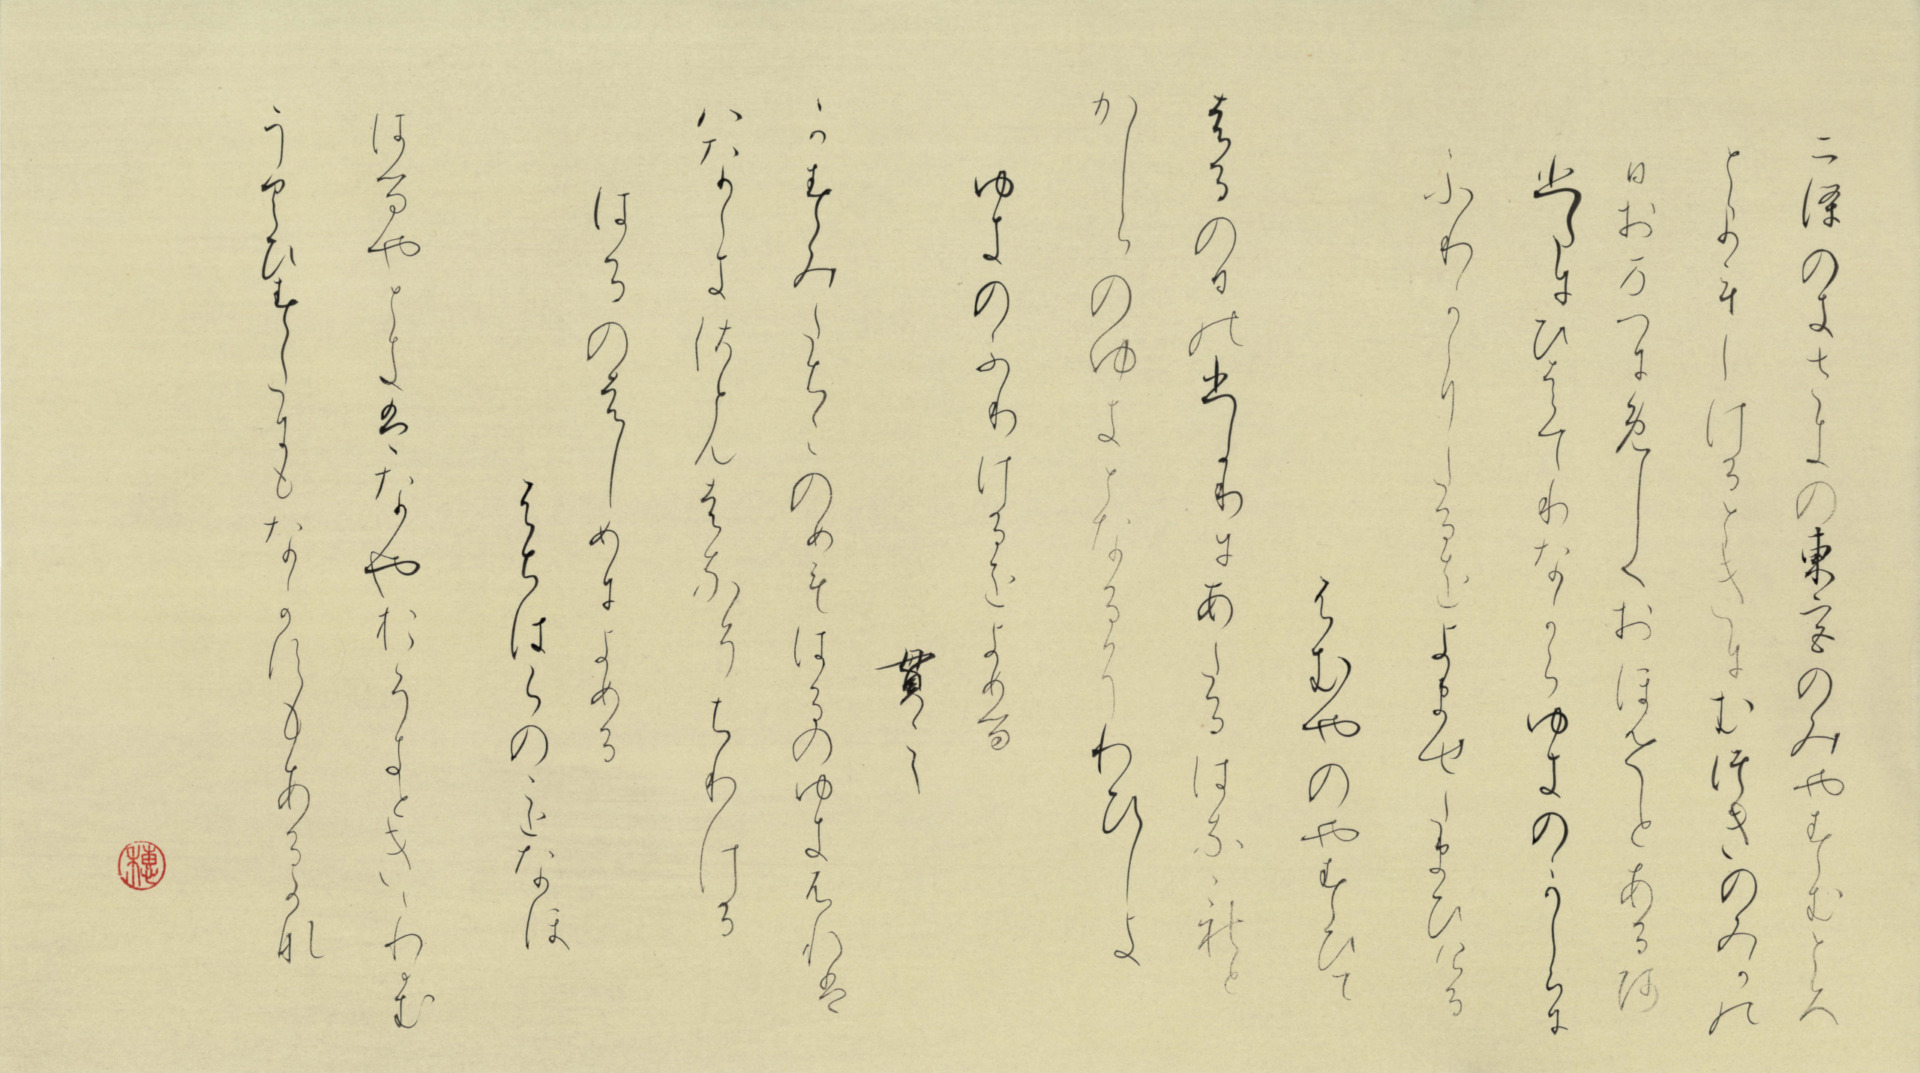 二條のきさきの東宮のみやすむところ
とまうしけるときにむつきのみかの
日おまへにめしておほせことあるあ
ひたにひはてりなからゆきのかしらに
ふりかゝりたるをよませたまひける
ふむやのやすひて
はるの日のひかりにあたるはなゝれと
かしらのゆきとなるそわひしき
ゆきのふりけるをよめる
貫之
かすみたちこのめもはるのゆきふれは
はなゝきさともはなそちりける
はるのはしめによめる
ふちはらのことなほ
はるやときはなやおそきときゝわかむ
うくひすたにもなかすもあるかな